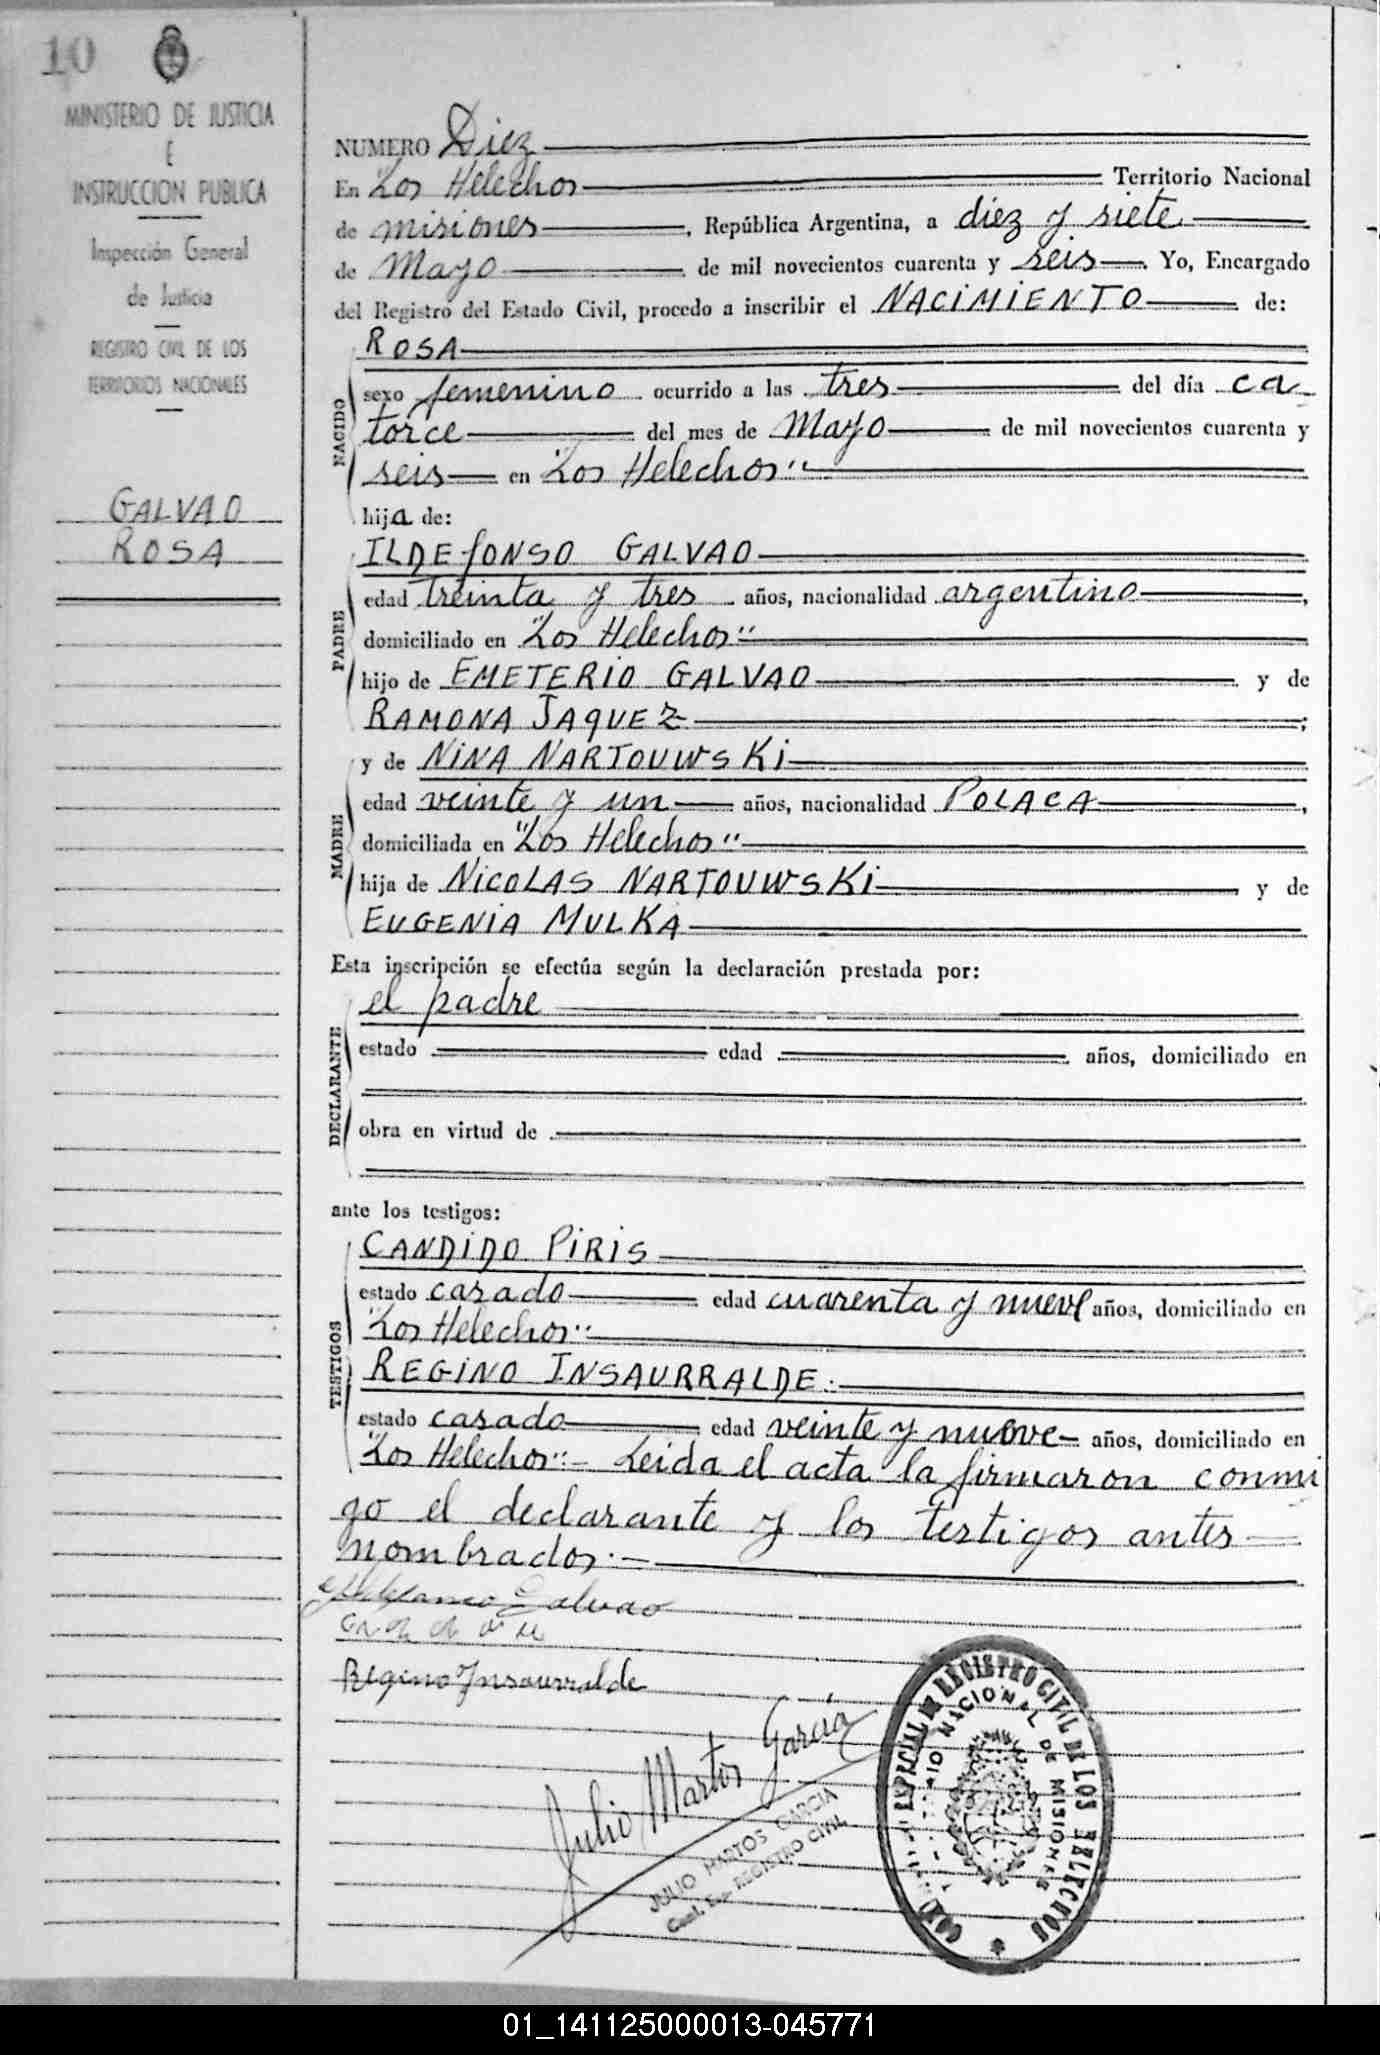 10
MINISTERIO DE JUSTICIA
E
INSTRUCCION PUBLICA
Inspección General
de Justicia
REGISTRO CIVIL DE LOS
TERRITORIOS NACIONALES
GALVAO
ROSA
NUMERO Diez
En "Los Helechos Territorio Nacional
de misiones, República Argentina, a diez y siete
de Mayo de mil novecientos cuarenta y seis. Yo, Encargado
del Registro del Estado Civil, procedo a inscribir el NACIMIENTO de:
NACIDO
ROSA
sexo femenino ocurrido a las tres del día ca-
torce del mes de Mayo de mil novecientos cuarenta y
seis en "Los Helechos"
hija de:
PADRE
ILDEFONSO GALVAO
edad treinta y tres años, nacionalidad argentino,
domiciliado en "Los Helechos"
hijo de EMETERIO GALVAO y de
RAMONA JAQUEZ;
MADRE
y de NINA NARTOUWSKI
edad veinte y un años, nacionalidad POLACA,
domiciliada en "Los Helechos"
hija de NICOLAS NARTOUWSKI y de
EUGENIA MULKA
Esta inscripción se efectúa según la declaración prestada por:
DECLARANTE
el padre
estado edad años, domiciliado en
obra en virtud de
ante los testigos:
TESTIGOS
CANDIDO PIRIS
estado casado edad cuarenta y nueve años, domiciliado en
"Los Helechos"
REGINO INSAURRALDE.
estado casado edad veinte y nueve años, domiciliado en
"Los Helechos".- Leida el acta la firmaron conmi
go el declarante y los testigos antes
nombrados.-
Ildefonso Galvao
Regino Insaurralde
Julio Martos García
JULIO MARTOS GARCIA
REGISTRO CIVIL
ESPECIAL DE REGISTRO CIVIL DE LOS HELECHOS
NACIONAL DE MISIONES
01_141125000013-045771